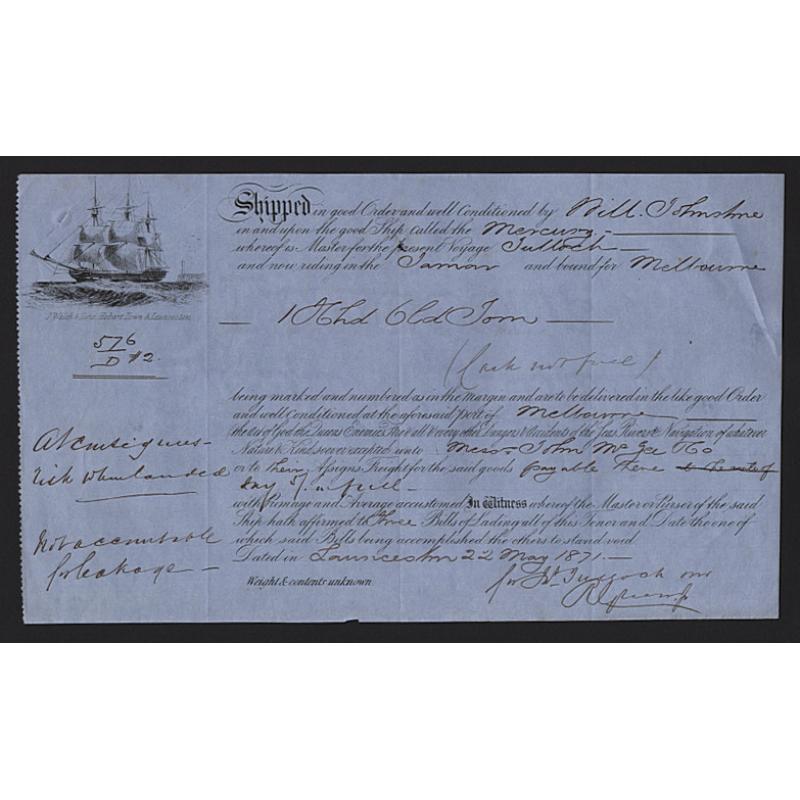 J. Walch & Sons, Hobart Town & Launceston
576
D #2.
At Consignees
risk when landed
Not accountable
for leakage
Shipped in good Order and well Conditioned by Will. Johnstone
in and upon the good Ship called the Mercury
whereof is Master for the present Voyage Tulloch
and now riding in the Tamar and bound for Melbourne
1 Hhd Old Tom
(Cask not full)
being marked and numbered as in the margin and are to be delivered in the like good Order
and well Conditioned at the aforesaid port of Melbourne
the act of God the Queens Enemies Fire & all & every other Dangers & Accidents of the Seas Rivers & Navigation of whatever
Nature & Kind soever excepted unto Messrs John McGee & Co
or to their Assigns Freight for the said goods payable there
day 5/. in full
with Primage and Average accustomed In Witness whereof the Master or Purser of the said
Ship hath affirmed to Three Bills of Lading all of this Tenor and Date the one of
which said Bills being accomplished the others to stand void
Dated in Launceston 22 May 1871.
Weight & contents unknown.
for Tulloch